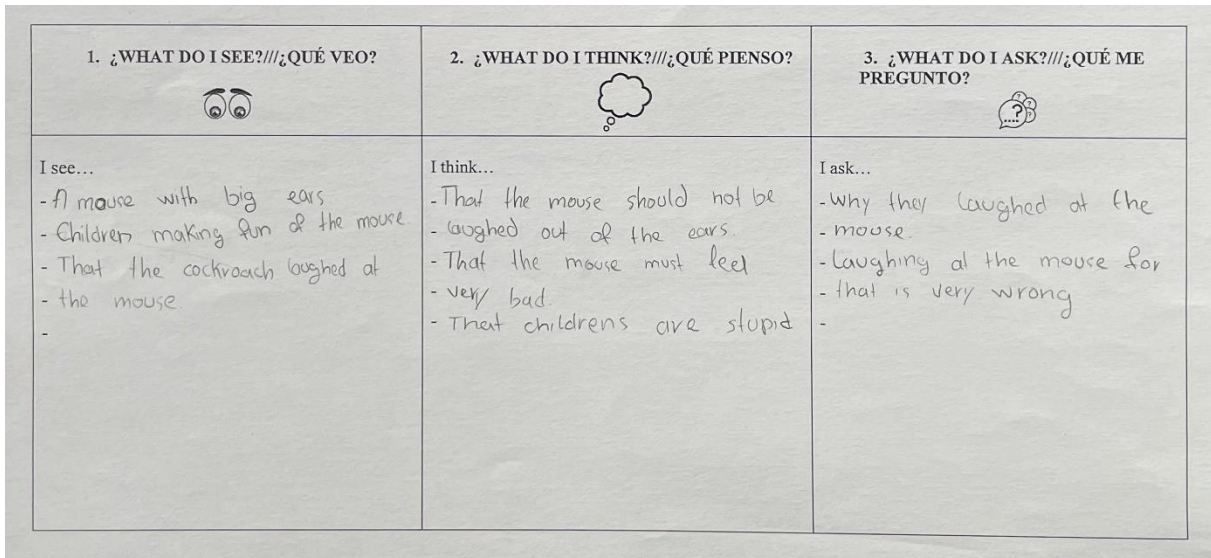 1. ¿WHAT DO I SEE?///¿QUÉ VEO?
2. ¿WHAT DO I THINK?///¿QUÉ PIENSO?
3. ¿WHAT DO I ASK?///¿QUÉ ME
PREGUNTO?
....?
I see...
- A mouse with big ears
- Children making fun of the mouse
- That the cockroach laughed at
- the mouse.
-
I think...
- That the mouse should not be
- laughed out of the ears.
- That the mouse must feel
- very bad.
- That childrens are stupid
I ask...
- Why they laughed at the
- mouse.
- Laughing at the mouse for
- that is very wrong
-